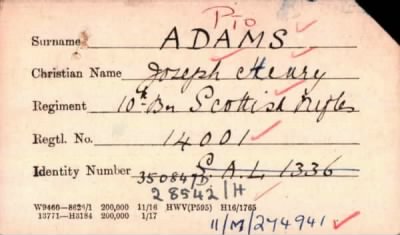 P10
Surname ADAMS
Christian Name Joseph Henry
Regiment 10th Bn Scottish Rifles
Regtl. No. 14001
Identity Number S.A.L. 1336
350847D.
28542/H
W9460—8626/1 200,000 11/16 HWV(P595) H16/1765
13771—H5184 200,000 1/17
11/M/274941